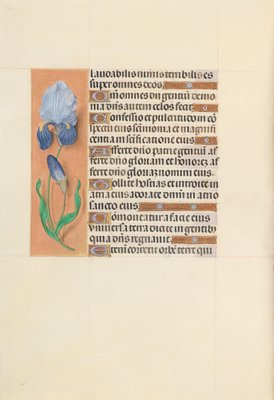 laudabilis nimis terribilis es
super omnes deos
Omnes dii gentium demo
nia dominus autem celos fecit
Confessio et pulcritudo in co
spectu eius scimonia et magnifi
centia in sanctificatione eius
Afferte domino patrie gentium af
ferte domino gloriam et honorez af
ferte domino gloriam nomini eius
Tollite hostias et introite in
atria eius adorate dominum in atrio
sancto eius
Comoveatur a facie eius
universa terra dicite in gentibus
quia dominus regnavit
Etenim correxit orbem terre qui